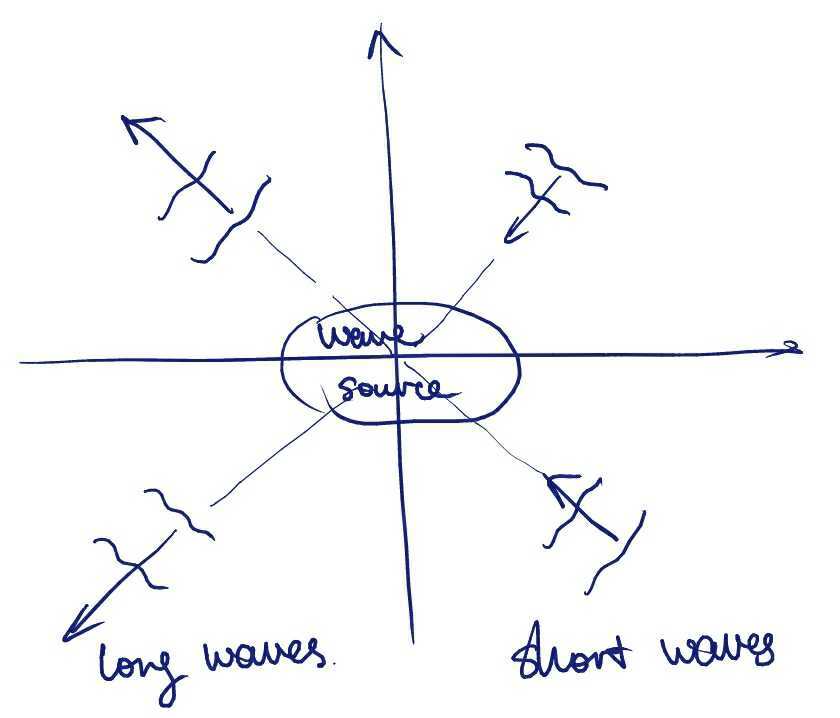 wave
source
long waves.
short waves